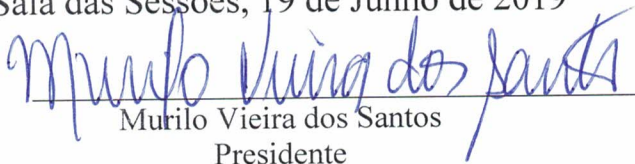 Sala das Sessões, 19 de Junho de 2019
Murilo Vieira dos Santos
Murilo Vieira dos Santos
Presidente